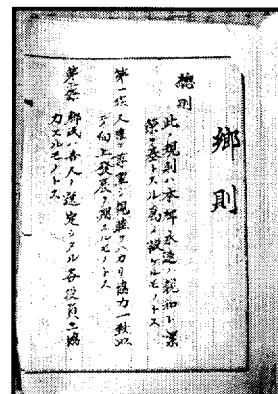 郷則
總則
此ノ規則ハ本郷永遠ノ親和ト繁
榮ヲ基トスル爲メ設ケルモノトス
第一條 人事ヲ尊重シ親睦ヲハカリ協力一致以
テ向上發展ヲ期スルモノトス
第二條 郷民ハ各人ノ選定シタル各役員ニ協
力スルモノトス